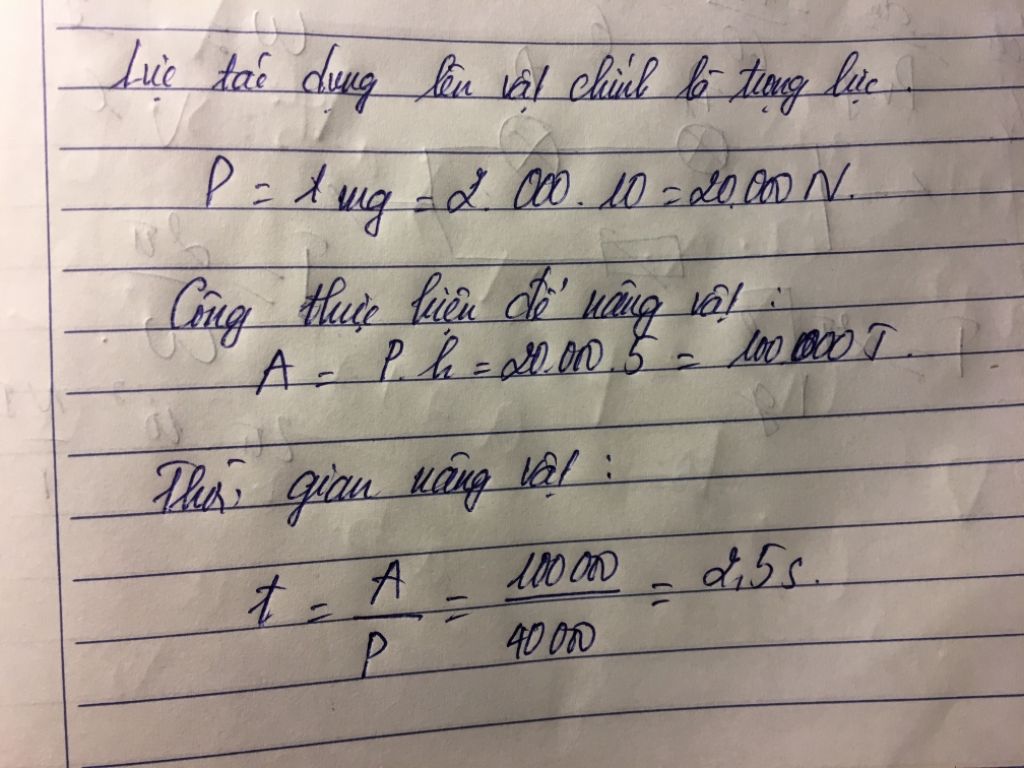 Lực tác dụng lên vật chính là trọng lực.
P = mg = 2.000.10 = 20.000 N.
Công thực hiện để nâng vật :
A = P.h = 20.000.5 = 100000 J.
Thời gian nâng vật :
t = A / P = 100000 / 40000 = 2,5s.